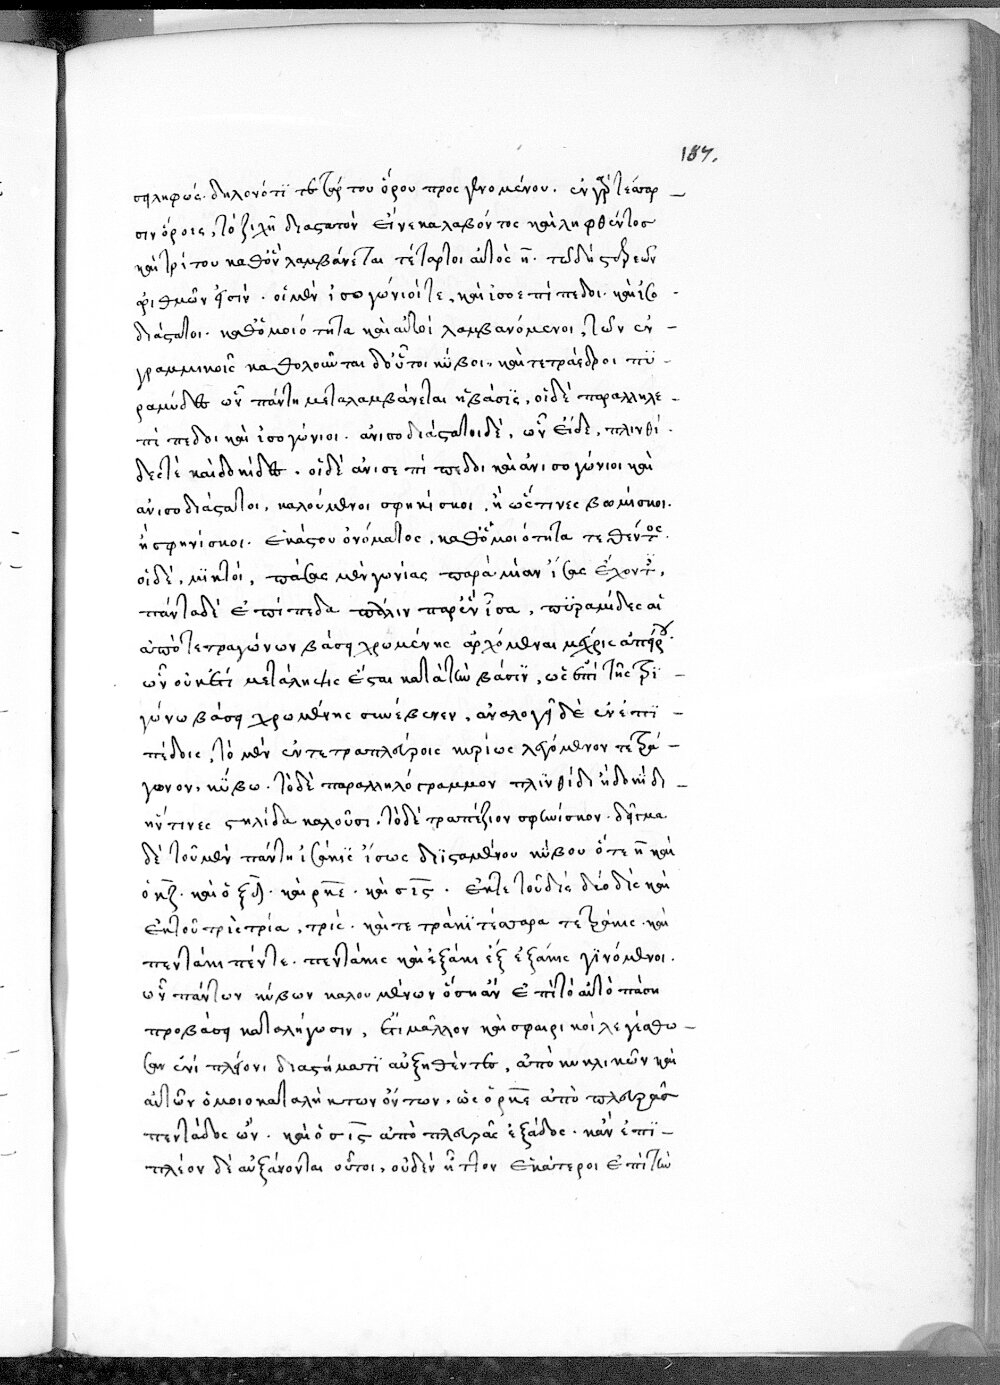 187.
σηληφώς. δηλονότι τετάρτου ὅρου προσγινομένου. ἐν γὰρ τέσσαρ–
σιν ὅροις, τὸ τριχῆ διαστατὸν εἶναι καταλαβόντος καὶ ληφθέντος
καὶ τρίτου καθὸ λαμβάνεται τέταρτοι αὐτὸς ῆ. τῶν δὴ στερεῶν
ἀριθμῶν εἰσὶν. οἱ μὲν ἰσογώνιοί τε, καὶ ἰσοεπίπεδοι. καὶ ἰσο–
διάστατοι. καθ' ὁμοιότητα καὶ αὐτοὶ λαμβανόμενοι, τῶν ἐν–
γραμμικοῖς καθολοῦνται δ' οὗτοι κῦβοι, καὶ τετράεδροι πϋ–
ραμύδες ὧν πάντη μεταλαμβάνεται ἡ βάσϊς, οἱ δὲ παραλληλε–
πίπεδοι καὶ ἰσογώνιοι. ἀνισοδιάστατοι δέ, ὧν εἴδε, πλινθί–
δες τὲ καὶ δοκίδες. οἱ δὲ ἀνισεπίπεδοι καὶ ἀνισογώνιοι καὶ
ἀνισοδιάστατοι, καλούμενοι σφηκίσκοι, ἢ ὥς τινες βωμίσκοι.
ἢ σφηνίσκοι. ἑκάστου ὀνόματος, καθ' ὁμοιότητα τεθέντος.
οἱ δέ, μικτοί, πάσας μὲν γωνίας παρὰ μίαν ἴσας ἔχοντες,
πάντα δὲ ἐπίπεδα πάλιν παρ' ἓν ἴσα, πϋραμίδες αἱ
ἀπὸ τετραγώνων βάσει χρωμένης ἀρχόμεναι μέχρις ἀπείρου.
ὧν οὐκέτι μετάληψις ἔσται κατὰ τὴν βάσιν, ὡς ἐπὶ τῆς τρι–
γώνω βάσει χρωμένης συνέβαινεν, ἀναλογεῖ δὲ ἐν ἐπι–
πέδοις, τὸ μὲν ἐν τετραπλεύροις κυρίως λεγόμενον τετρά–
γωνον, κύβω. τὸ δὲ παραλληλόγραμμον πλινθίδι ἢ δοκίδι–
ἥν τινες στηλίδα καλοῦσι. τὸ δὲ τραπέζιον σφηκίσκον. δεῖγμα
δὲ τοῦ μὲν πάντη ἰσάκις ἴσως διϊσταμένου κύβου ὅτε η καὶ
ὁ κζ. καὶ ὁ ξδ. καὶ ρκε. καὶ σις. ἔκ τε τοῦ δὶς δύο δὶς καὶ
ἐκ τοῦ τρὶς τρία, τρίς. καὶ τετράκϊ τέσσαρα τετράκις. καὶ
πεντάκι πέντε. πεντάκις καὶ ἑξάκι ἓξ ἑξάκις γινόμενοι.
ὧν πάντων κύβων καλουμένων ὅσοι ἂν ἐπὶ τὸ αὐτὸ πάσῃ
προβάσει καταλήγωσιν, ἔτι μᾶλλον καὶ σφαιρικοὶ λεγέσθω–
σαν ἑνὶ πλέονι διαστήματι αὐξηθέντες, ἀπὸ κυκλικῶν καὶ
αὐτῶν ὁμοιοκαταλήκτων ὄντων. ὡς ὁ ρκε ἀπὸ πλευρᾶς
πεντάδος ὤν. καὶ ὁ σις ἀπὸ πλευρᾶς ἑξάδος. κἂν ἐπι–
πλέον δὲ αὐξάνονται οὗτοι, οὐδὲν ἧττον ἑκάτεροι ἐπὶ τὴν